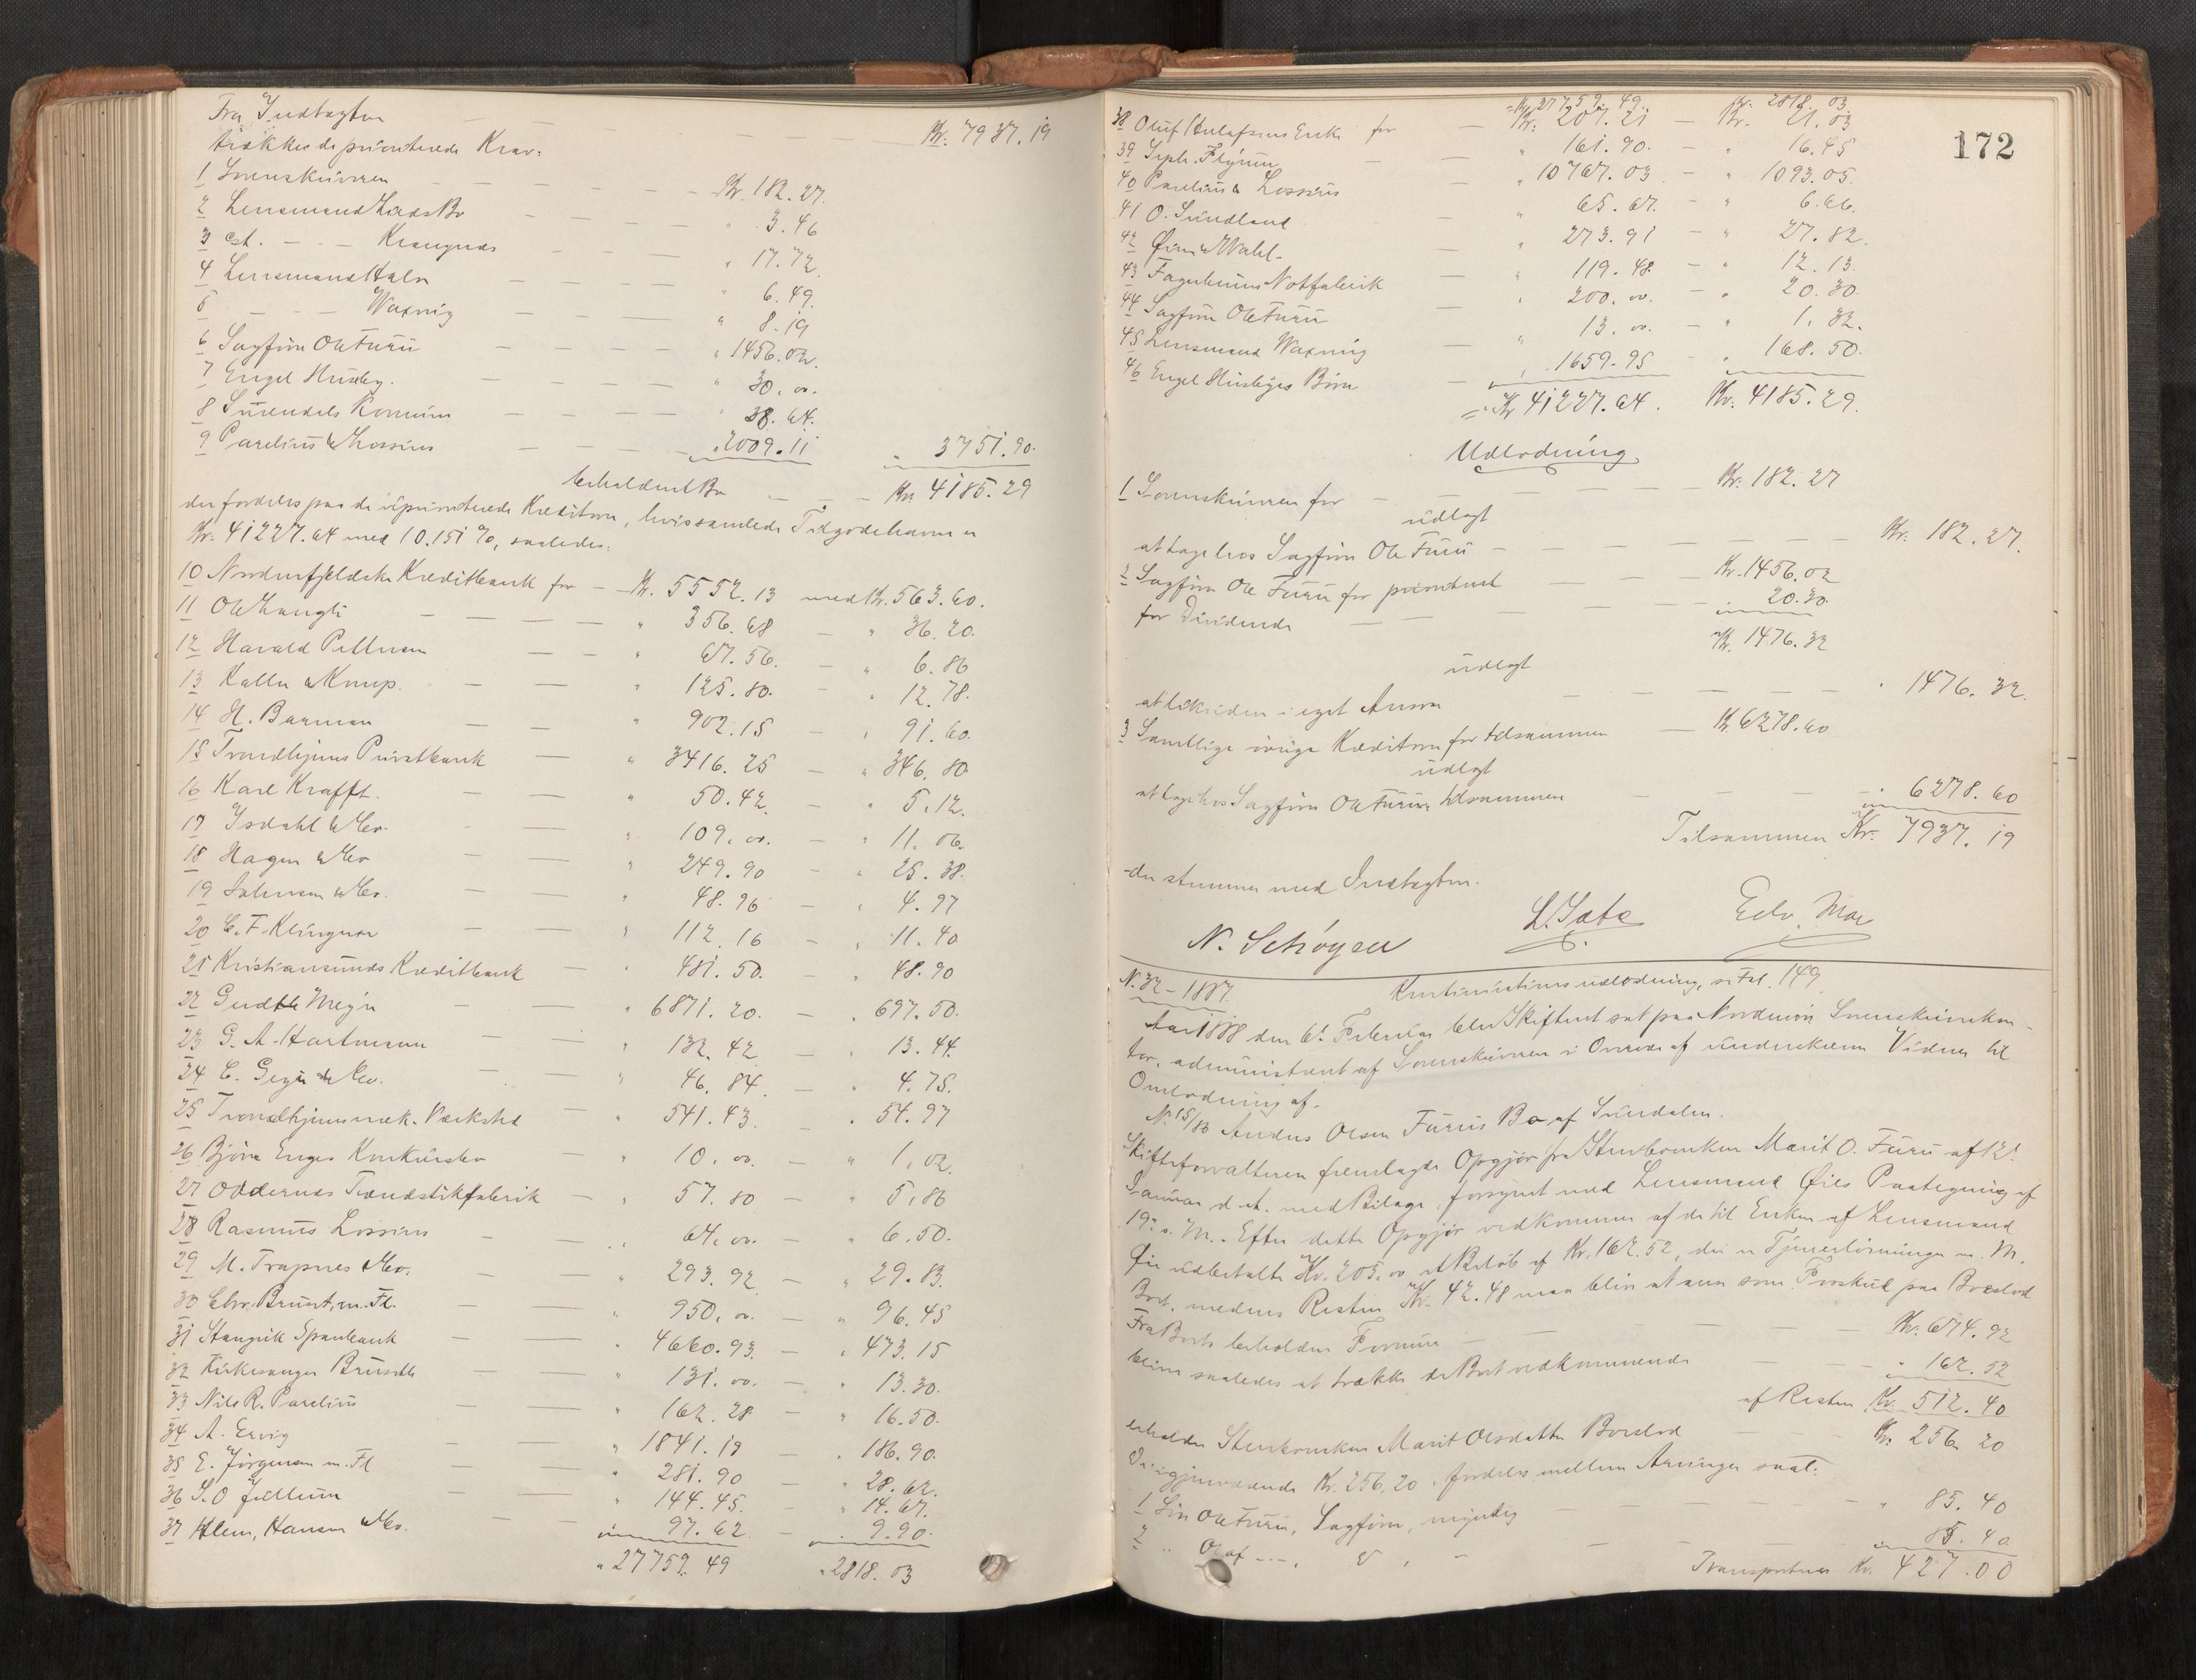 Fra Indtægten — — — — Kr. 7937.19
trækkes de prioriterede Krav:
1 Sorenskriveren — — — Kr. 182.27.
2 Lensmand Lieds Bo — — — " 3.46
3 cst. — " — Krangnæs — — — " 17.72.
4 Lensmand Halse — — — " 6.49.
5 — " — Waxvig — — — " 8.19
6 Sagfører Ole Furu — — — " 1456.02.
7 Engel Husby. — — — " 30.00.
8 Surendals Kommune — — — " 38.64.
9 Parelius & Lossius — — — " 2009.11 " 3751.90.
beholdent Bo — — — Kr. 4185.29
der fordeles paa de uprioriterede Kreditorer, hvis samlede Tilgodehavende er
Kr. 41227.64 med 10.151 %, saaledes:
10 Nordenfjeldske Kreditbank for — Kr. 5552.13 med Kr. 563.60.
11 Ole Langli — — — " 356.68 — " 36.20.
12 Harald Pettersen — — " 67.56. — " 6.86
13 Kallen & Knup. — — " 125.80. — " 12.78.
14 H. Barman — — " 902.15 — " 91.60.
15 Trondhjems Privatbank — " 3416.25 — " 346.80.
16 Karl Krafft. — — " 50.42. — " 5.12.
17 Isdahl & Co. — — " 109.00. — " 11.06.
18 Hagen & Co — — " 249.90 — " 25.38.
19 Salvesen & Co. — — " 48.96 — " 4.97
20 C. F. Klingner — — " 112.16 — " 11.40
21 Kristiansunds Kreditbank — " 481.50. — " 48.90
22 Gudtke Meyn — — " 6871.20. — " 697.50.
23 G. A. Hartmann — — " 132.42 — " 13.44.
24 C. Geijer & Co. — — " 46.84 — " 4.75.
25 Trondhjems mek. Værksted — " 541.43. — " 54.97
26 Bjørn Enges Konkursbo — " 10.00. — " 1.02.
27 Oddernæs Tændstikfabrik — " 57.80 — " 5.86
28 Rasmus Lossius — — " 64.00. — " 6.50.
29 M. Trapnes & Co. — — " 293.92 — " 29.83.
30 Chr. Bruset, m. Fl. — — " 950.00. — " 96.45
31 Stangvik Sparebank — — " 4660.93. — " 473.15
32 Kirkesanger Bruseth — — " 131.00. — " 13.30.
33 Nils R. Parelius — — " 162.28 — " 16.50.
34 A. Ervig — — " 1841.19 " 186.90.
35 E. Jørgensen m. Fl — — " 281.90 — " 28.62.
36 S. O Jullum — — " 144.45. — " 14.67.
37 Klem, Hansen & Co. — — " 97.62 — " 9.90.
" 27759.49 " 2818.03
172
Kr. 27759.49. Kr. 2818.03.
38 Oluf Enke for — Kr. 207.21 — Kr. 21.03
39 Flÿum — — " 161.90. — " 16.45
40 Parelius & Lossius — " 10767.03 — " 1093.05.
41 O. Sundland — " 65.67. — " 6.66.
42 Øien & Wahl — " 273.91 — " 27.82.
43 Fagerheims Notfabrik — " 119.48 — " 12.13
44 Sagfører Ole Furu — " 200.00. — " 20.30.
45 Lensmand Waxvig — " 13.00. — " 1.32.
46 Engel Husbyes Børn — " 1659.95 — " 168.50.
Kr. 41227.64. Kr. 4185.29.
Udlodning
1 Sorenskriveren for — — — Kr. 182.27
udlagt
at tage hos Sagfører Ole Furu — — — — Kr. 182.27.
2 Sagfører Ole Furu for prioriteret — — Kr. 1456.02
for Dividende — — — 20.30.
Kr. 1476.32
udlagt
at likvidere i eget Ansvar — — — — " 1476.32.
3 Samtlige øvrige Kreditorer for tilsammen — Kr. 6278.60
udlagt
at tage hos Sagfører Ole Furu, tilsammen — — — " 6278.60
Tilsammen Kr. 7937.19
der stemmer med Indtægten.
N. Schøyen L. Sæte Edv. Moe
N. 32 – 1887. Kontinuationsudlodning, se Fol. 149.
Aar 1888 den 6te Februar blev Skifteret sat paa Nordmøre Sorenskriverkon-
tor, administreret af Sorenskriveren i Overvær af underskrevne Vidner til
Omlodning af.
N. 15/86 Anders Olsen Furus Bo af Sundalen.
Skifteforvalteren fremlagde Opgjør fra Stervboenken Marit O. Furu af 12te
Januar d. A. med Bilage, forsynet med Lensmand Øies Paategning af
19de s. M. Efter dette Opgjør vedkommer af de til Enken af Lensmand
Øie udbetalte Kr. 205.00 et Beløb af Kr. 162.52, der er Tjenerlønninger m. M.
Boet, medens Resten Kr. 42.48 maa blive at anse som Forskud paa Boeslod
Fra Boets beholdne Formue — — — Kr. 674.92
bliver saaledes at trække de Boet vedkommende — — — " 162.52
af Resten Kr. 512.40
erholder Stervboenken Marit Olsdatter Boeslod — — Kr. 256.20
De igjenværende Kr. 256.20. fordeles mellem Arvinger saal:
1 Søn Ole Furu, Sagfører, myndig — — — " 85.40
2 " Olaf — " —, " — — — " 85.40
Transporteres Kr. 427.00